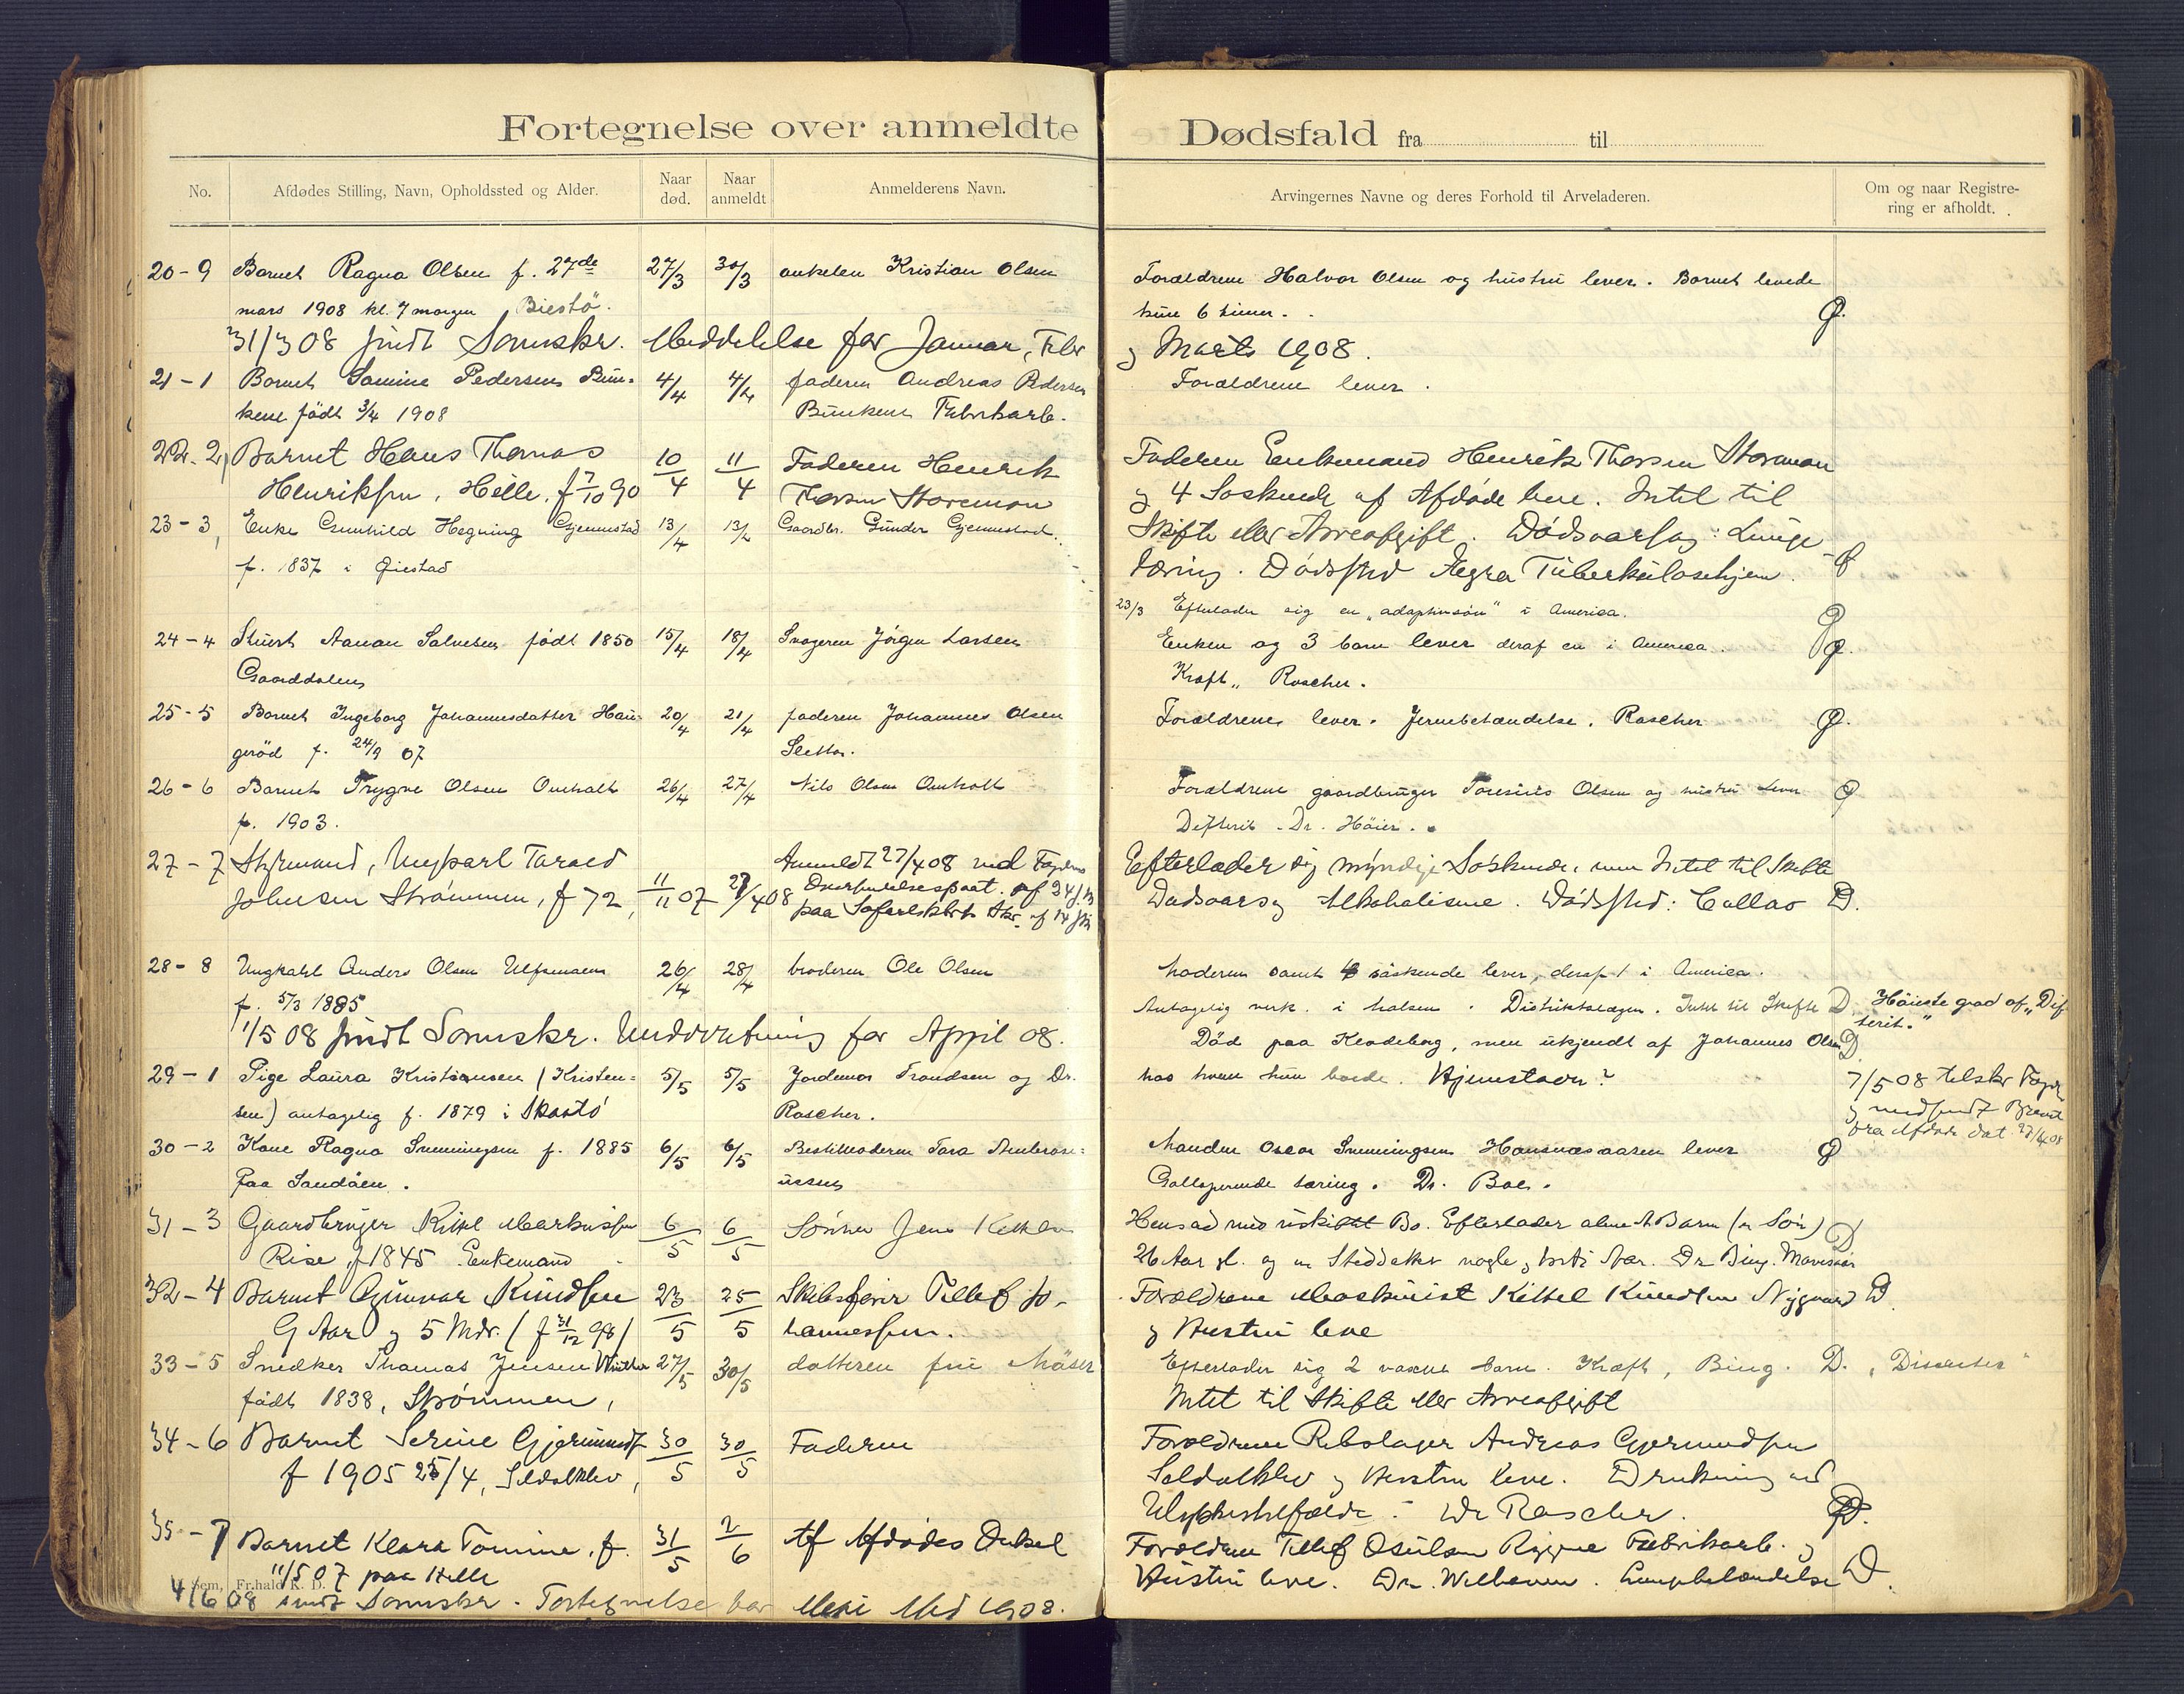 Fortegnelse over anmeldte Dødsfald fra til
No. Afdødes Stilling, Navn, Opholdssted og Alder. Naar død. Naar anmeldt Anmelderens Navn. Arvingernes Navne og deres Forhold til Arveladeren. Om og naar Registrering er afholdt.
20-9 Barnet Ragna Olsen f. 27de 27/3 30/3 onkelen Kristian Olsen
mars 1908 kl. 7 morgen Biestö.
Forældrene Halvor Olsen og hustru lever. Barnet levede
kun 6 timer.
31/3 08 sendt Sorenskr. Meddelelse for Januar, Febr
og Marts 1908.
21-1 Barnet Samine Pedersen Bun- 4/4 4/4 faderen Andreas Pedersen
kene født 3/4 1908 Bunkene Fabrikarb.
Forældrene lever.
22-2, Barnet Hans Thomas 10/4 11/4 Faderen Henrik
Henriksen, Helle, f 7/10 90 Thorsen Storemon
Faderen Enkemand Henrik Thorsen Storemon
og 4 Søskende af Afdøde leve. Intet til
Skifte eller Arveafgift. Dødsaarsag: Lunge-
tæring. Dødssted Tuberkulosehjem.
23-3, Enke Gunhild Hegning Gjennestad 13/4 13/4 Gaardbr. Gunder Gjennestad.
f. 1837 i Øiestad
23/3 Efterlader sig en "adoptivsön" i America.
24-4 Stuert Aanon Salvesen født 1850 15/4 18/4 Svogeren Jörgen Larsen
Gaarddalen
Enken og 3 barn lever deraf en i America.
Kræft, Roscher.
25-5 Barnet Ingeborg Johannesdatter Hau- 20/4 21/4 faderen Johannes Olsen
geröd f. 24/9 07 Sletta.
Forældrene lever. Jernebetændelse. Roscher
26-6 Barnet Trygve Olsen Omholt 26/4 27/4 Nils Olsen Omholt
f. 1903.
Forældrene gaardbruger Olsen og hustru lever
Difterit. Dr. Höier.
27-7 Styrmand, Ungkarl Tarald Anmeldt 27/4 08 ved
Johnsen Strömmen, f 72, 11/11 07 27/4 08
Efterlader sig myndige Søskende, men Intet til Skifte
Dødsaarsag Alkoholisme. Dødssted: Callao D.
28-8 Ungkarl Anders Olsen Ulfsnæs 26/4 28/4 broderen Ole Olsen
f. 5/3 1885
Moderen samt söskende lever, deraf 1 i America.
Antagelig verk i halsen. Distriktslægen. Intet til Skifte D. Höieste grad af "Dif-
terit."
1/5 08 sendt Sorenskr. Underretning for April 08.
29-1 Pige Laura Kristiansen (Kristen- 5/5 5/5 Jordemor Frandsen og Dr.
sen) antagelig f. 1879 i Skaatö Roscher.
Död paa Klodeborg, men ukjendt af Johannes Olsen D
hos hvem hun boede. Hjemstavn?
7/5 08 tilskr
og medsendt
fra Afdøde dat. 27/4 08
30-2 Kone Ragna Svenningsen f. 1885 6/5 6/5 Bestemoderen Tara Ambrosi-
paa Sandöen. ussen
Manden Oscar Svenningsen Hansnæsaasen lever
Galloperende tæring. Dr. Boe.
31-3 Gaardbruger Kittel Markussen 6/5 6/5 Sønnen Jens Kittelsen
Rise f 1845 Enkemand
Hensad med uskiftet Bo. Efterlader alene 1 Barn (en Søn)
26 Aar gl. og en Steddatter Dr Bing.
32-4 Barnet Gunnar Knudsen 23/5 25/5 Skibsfører Tellef Jo-
9 Aar og 5 Mdr. (f 31/12 98) hannessen.
Forældrene Maskinist Kittel Knudsen Nygaard D
og Hustru leve
33-5 Snedker Thomas Jensen Winther 27/5 30/5 datteren fru Mäser
født 1838, Strømmen,
Efterlader sig 2 voxne barn. Kræft, Bing. D. "Dissenter"
Intet til Skifte eller Arveafgift
34-6 Barnet Serine Gjermunds 30/5 30/5 Faderen
f 1905 25/4, Seldalklev,
Forældrene Rebslager Andreas Gjermundsen
Seldalklev og Hustru leve. Drukning ved
Ulykkestilfælde. Dr Roscher.
35-7 Barnet Klara Tomine, f. 31/5 2/6 Af Afdødes Onkel
11/5 07 paa Helle
Forældrene Tellef Osulsen Rygene Fabrikarb. og
Hustru leve. Dr. Welhaven. Lungebetændelse D.
Sem, Fr.hald K. D.
4/6 08 sendt Sorenskr. Fortegnelse for Mai Md 1908.